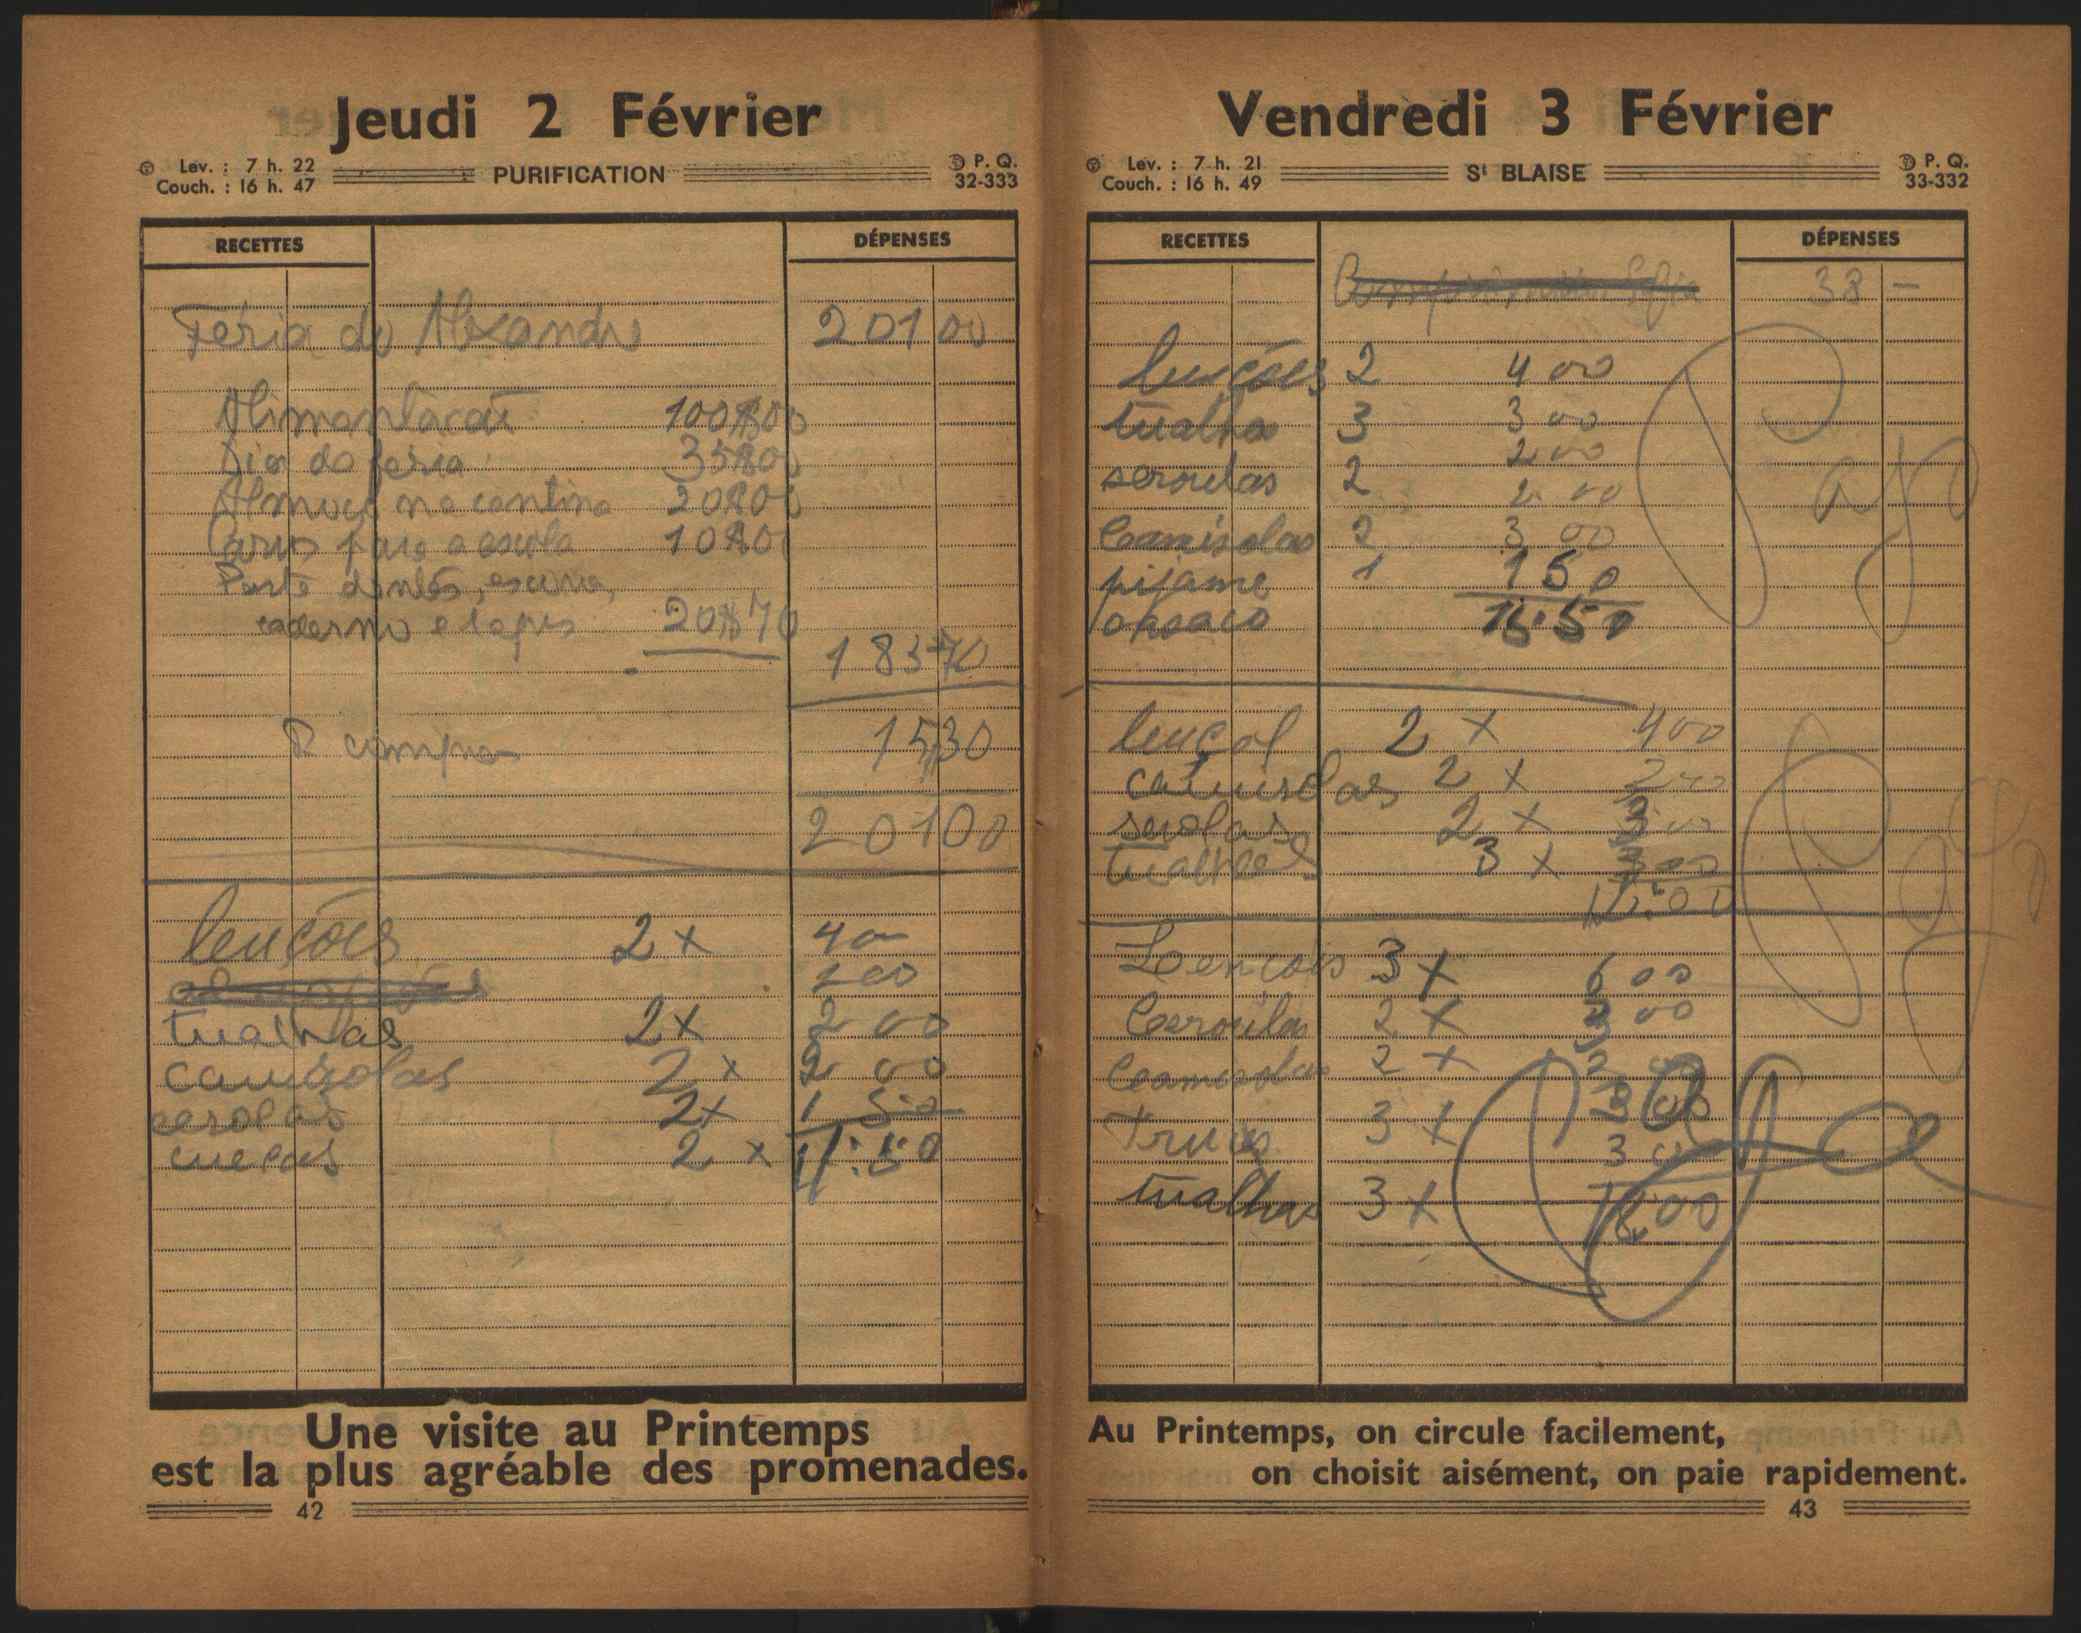 Jeudi 2 Février
Lev. : 7 h. 22
Couch. : 16 h. 47
PURIFICATION
P. Q.
32-333
RECETTES
DÉPENSES
Féria do Alexandre 201 00
Alimentacão 100$00
Dia da feria 35$00
Almoço na cantina 20$00
para a escola 10$0
Pasta dentes, escova,
caderno e lapis 20$70
183 70
P compra 15$30
201 00
lençóes 2 x 4 00
2 00
tualhas 2 x 2 00
camisolas 2 x 2 00
cerolas 2 x 1 50
cuecas 2 x 11.50
Une visite au Printemps
est la plus agréable des promenades.
42
Vendredi 3 Février
Lev. : 7 h. 21
Couch. : 16 h. 49
St BLAISE
P. Q.
33-332
RECETTES
DÉPENSES
38 —
lençóes 2 4 00
tualha 3 3 00
seroulas 2 2 00
2 00
Camisolas 2 3 00
pijame 1 1 50
casaco 15.50
pago
lençol 2 x 4 00
camisolas 2 x 2 00
serolas 2 x 3 00
tualhas 3 x 3 00
12.00
pago
Lencois 3 x 6 00
Ceroulas 2 x 3 00
Camisolas 2 x 2 00
Truces 3 x 3 00
3 00
tualhas 3 x 00
Au Printemps, on circule facilement,
on choisit aisément, on paie rapidement.
43